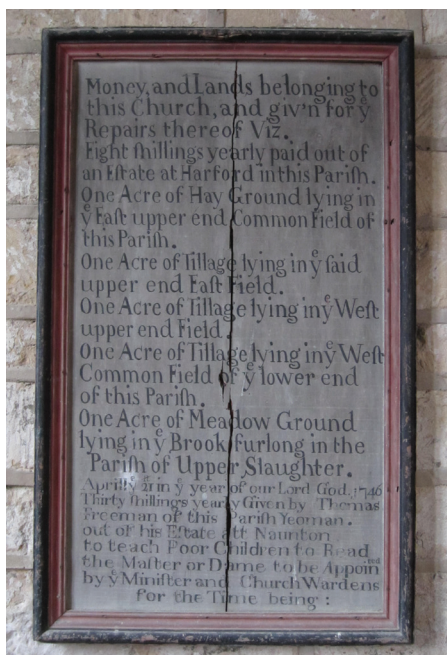 Money, and Lands belonging to
this Church, and giv'n for yͤ
Repairs thereof Viz.
Eight ſhillings yearly paid out of
an Eſtate at Harford in this Pariſh.
One Acre of Hay Ground lying in
yͤ Eaſt upper end Common Field of
this Pariſh.
One Acre of Tillage lying in yͤ ſaid
upper end Eaſt Field.
One Acre of Tillage lying in yͤ Weſt
upper end Field.
One Acre of Tillage lying in yͤ Weſt
Common Field of yͤ lower end
of this Pariſh.
One Acre of Meadow Ground
lying in yͤ Brook furlong in the
Pariſh of Upper Slaughter.
in yͤ year of our Lord God. 1746
Thirty ſhillings yearly Given by Thomas
Freeman of this Pariſh Yeoman.
out of his Eſtate att Naunton
to teach Poor Children to Read
the Maſter or Dame to be Appointed
by yͤ Miniſter and Church Wardens
for the Time being :